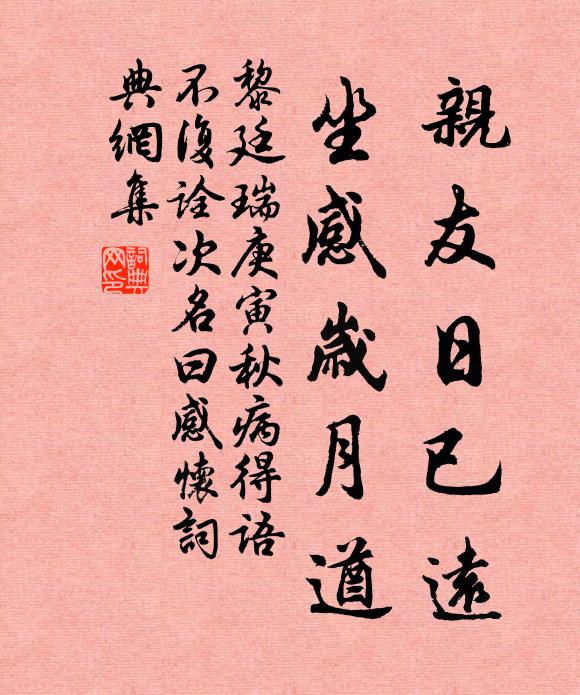 親友日已遠
坐感歲月遒
黎廷瑞庚寅秋病得語
不復詮次名曰感懷詞
典網集
詞典網印